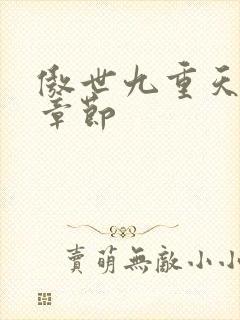 傲世九重天
章節
賣萌無敵小小